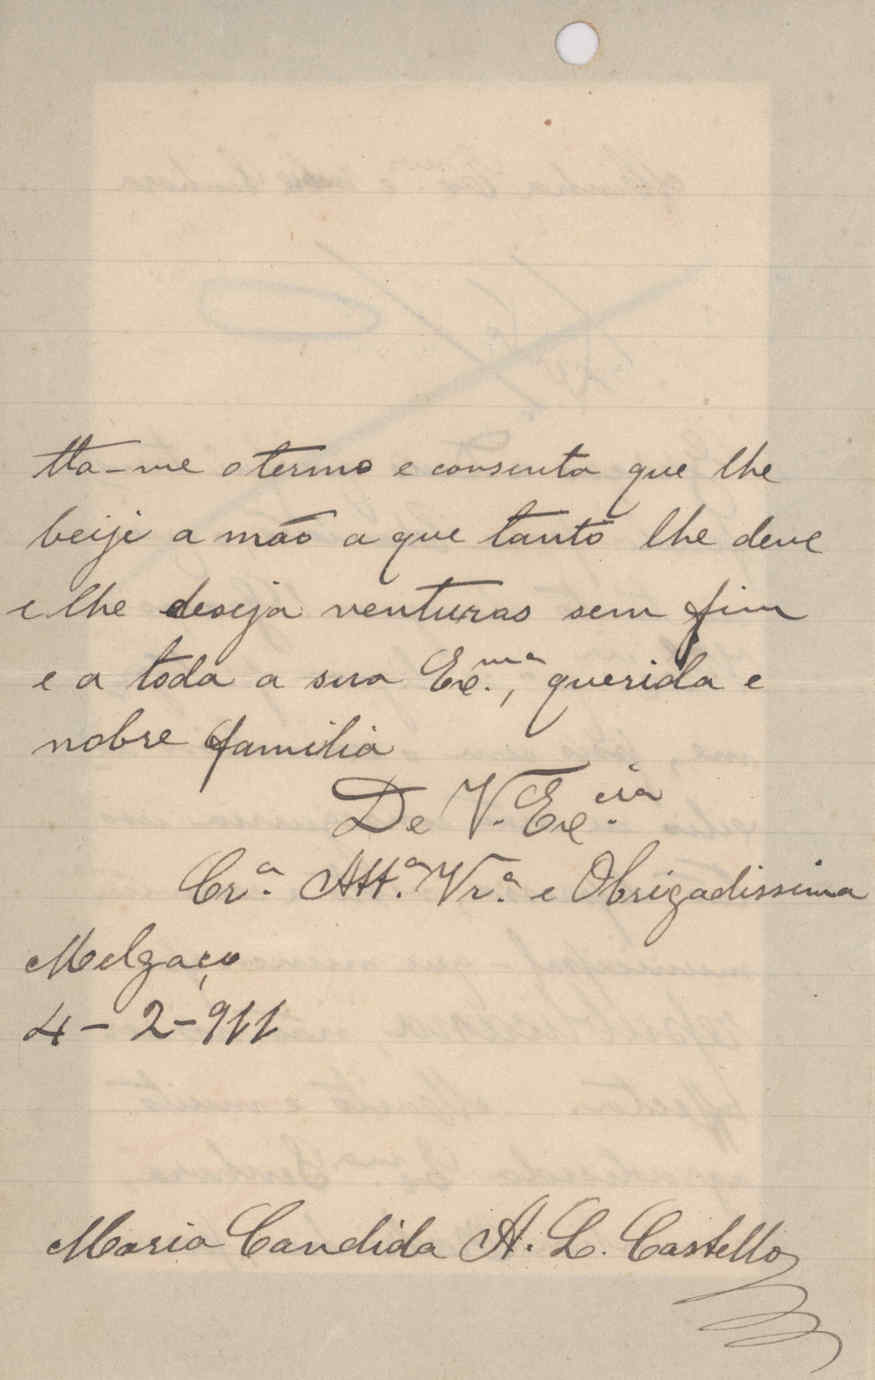 tta-me o termo e consenta que lhe
beije a mão a que tanto lhe deve
e lhe deseja venturas sem fim
e a toda a sua Ex.ma, querida e
nobre familia
De V. Ex.cia
Cr.a Att.a Vr.a e Obrigadissima
Melgaço
4-2-911
Maria Candida A. L. Castello